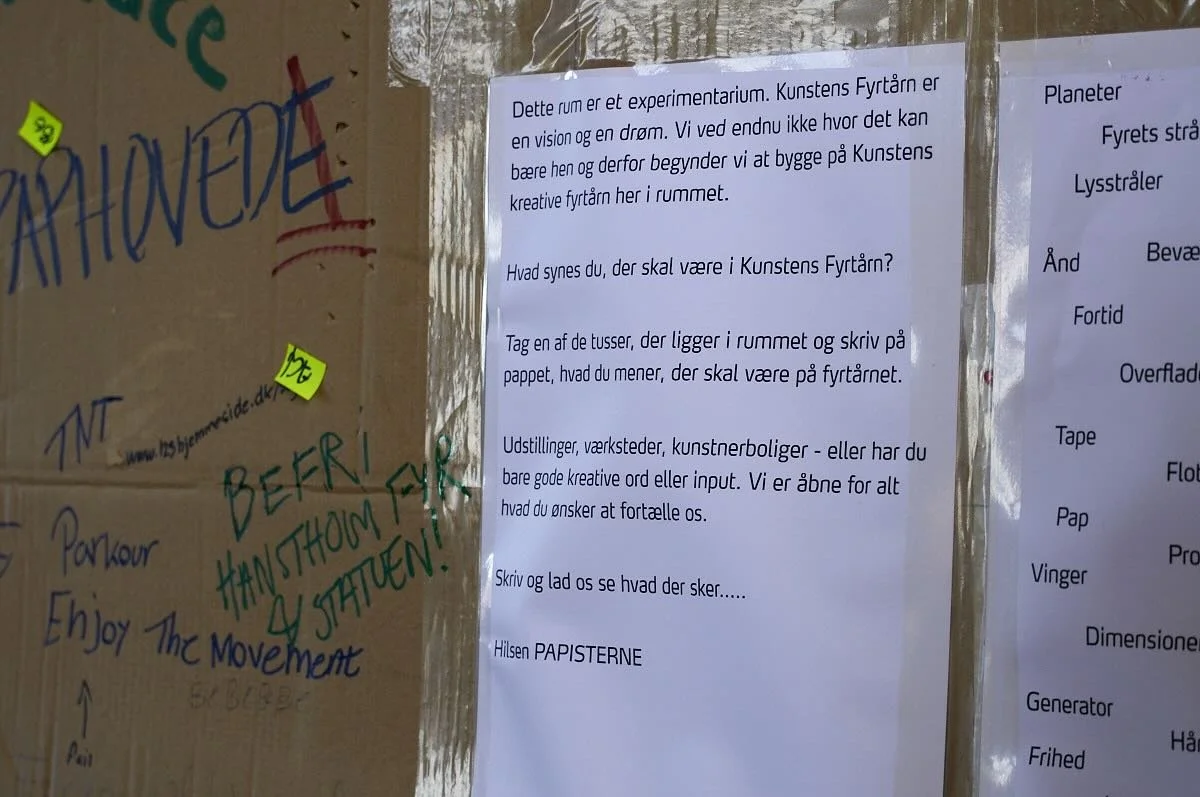 PAPHOVEDE
TNT
www.123hjemmeside.dk/
BEFRI
HANSTHOLM FYR
& STATUEN!
Parkour
Enjoy The Movement
Dette rum er et experimentarium. Kunstens Fyrtårn er
en vision og en drøm. Vi ved endnu ikke hvor det kan
bære hen og derfor begynder vi at bygge på Kunstens
kreative fyrtårn her i rummet.
Hvad synes du, der skal være i Kunstens Fyrtårn?
Tag en af de tusser, der ligger i rummet og skriv på
pappet, hvad du mener, der skal være på fyrtårnet.
Udstillinger, værksteder, kunstnerboliger - eller har du
bare gode kreative ord eller input. Vi er åbne for alt
hvad du ønsker at fortælle os.
Skriv og lad os se hvad der sker.....
Hilsen PAPISTERNE
Planeter
Fyrets strå
Lysstråler
Ånd
Bevæ
Fortid
Overflade
Tape
Flot
Pap
Pro
Vinger
Dimensione
Generator
Hår
Frihed